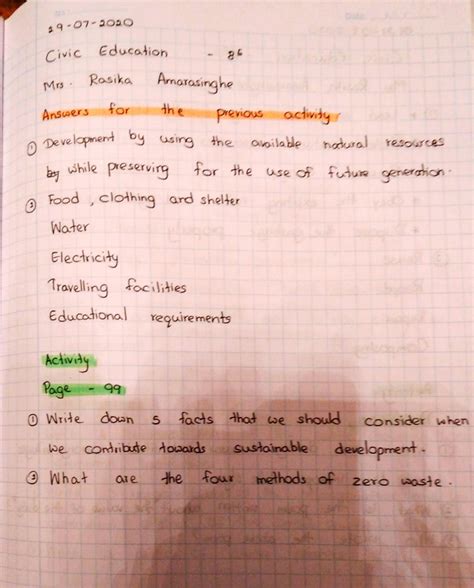 29-07-2020
Civic Education - 86
Mrs. Rasika Amarasinghe
Answers for the previous activity
① Development by using the available natural resources
while preserving for the use of future generation.
② Food, clothing and shelter
Water
Electricity
Travelling facilities
Educational requirements
Activity
Page - 99
① Write down 5 facts that we should consider when
we contribute towards sustainable development.
② What are the four methods of zero waste.